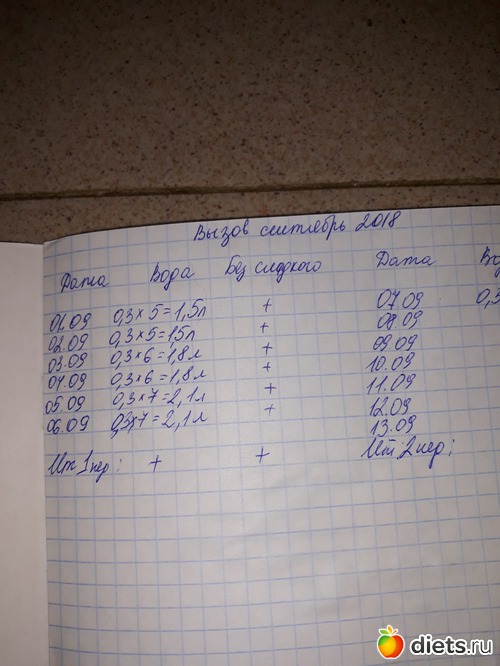 Вызов сентябрь 2018
Дата Вода Без сладкого Дата Во
01.09 0,3×5=1,5л + 07.09 0,3
02.09 0,3×5=1,5л + 08.09
03.09 0,3×6=1,8л + 09.09
04.09 0,3×6=1,8л + 10.09
05.09 0,3×7=2,1л + 11.09
06.09 0,3×7=2,1л + 12.09
13.09
Ит 1 нед: + + Ит: 2 нед:
diets.ru